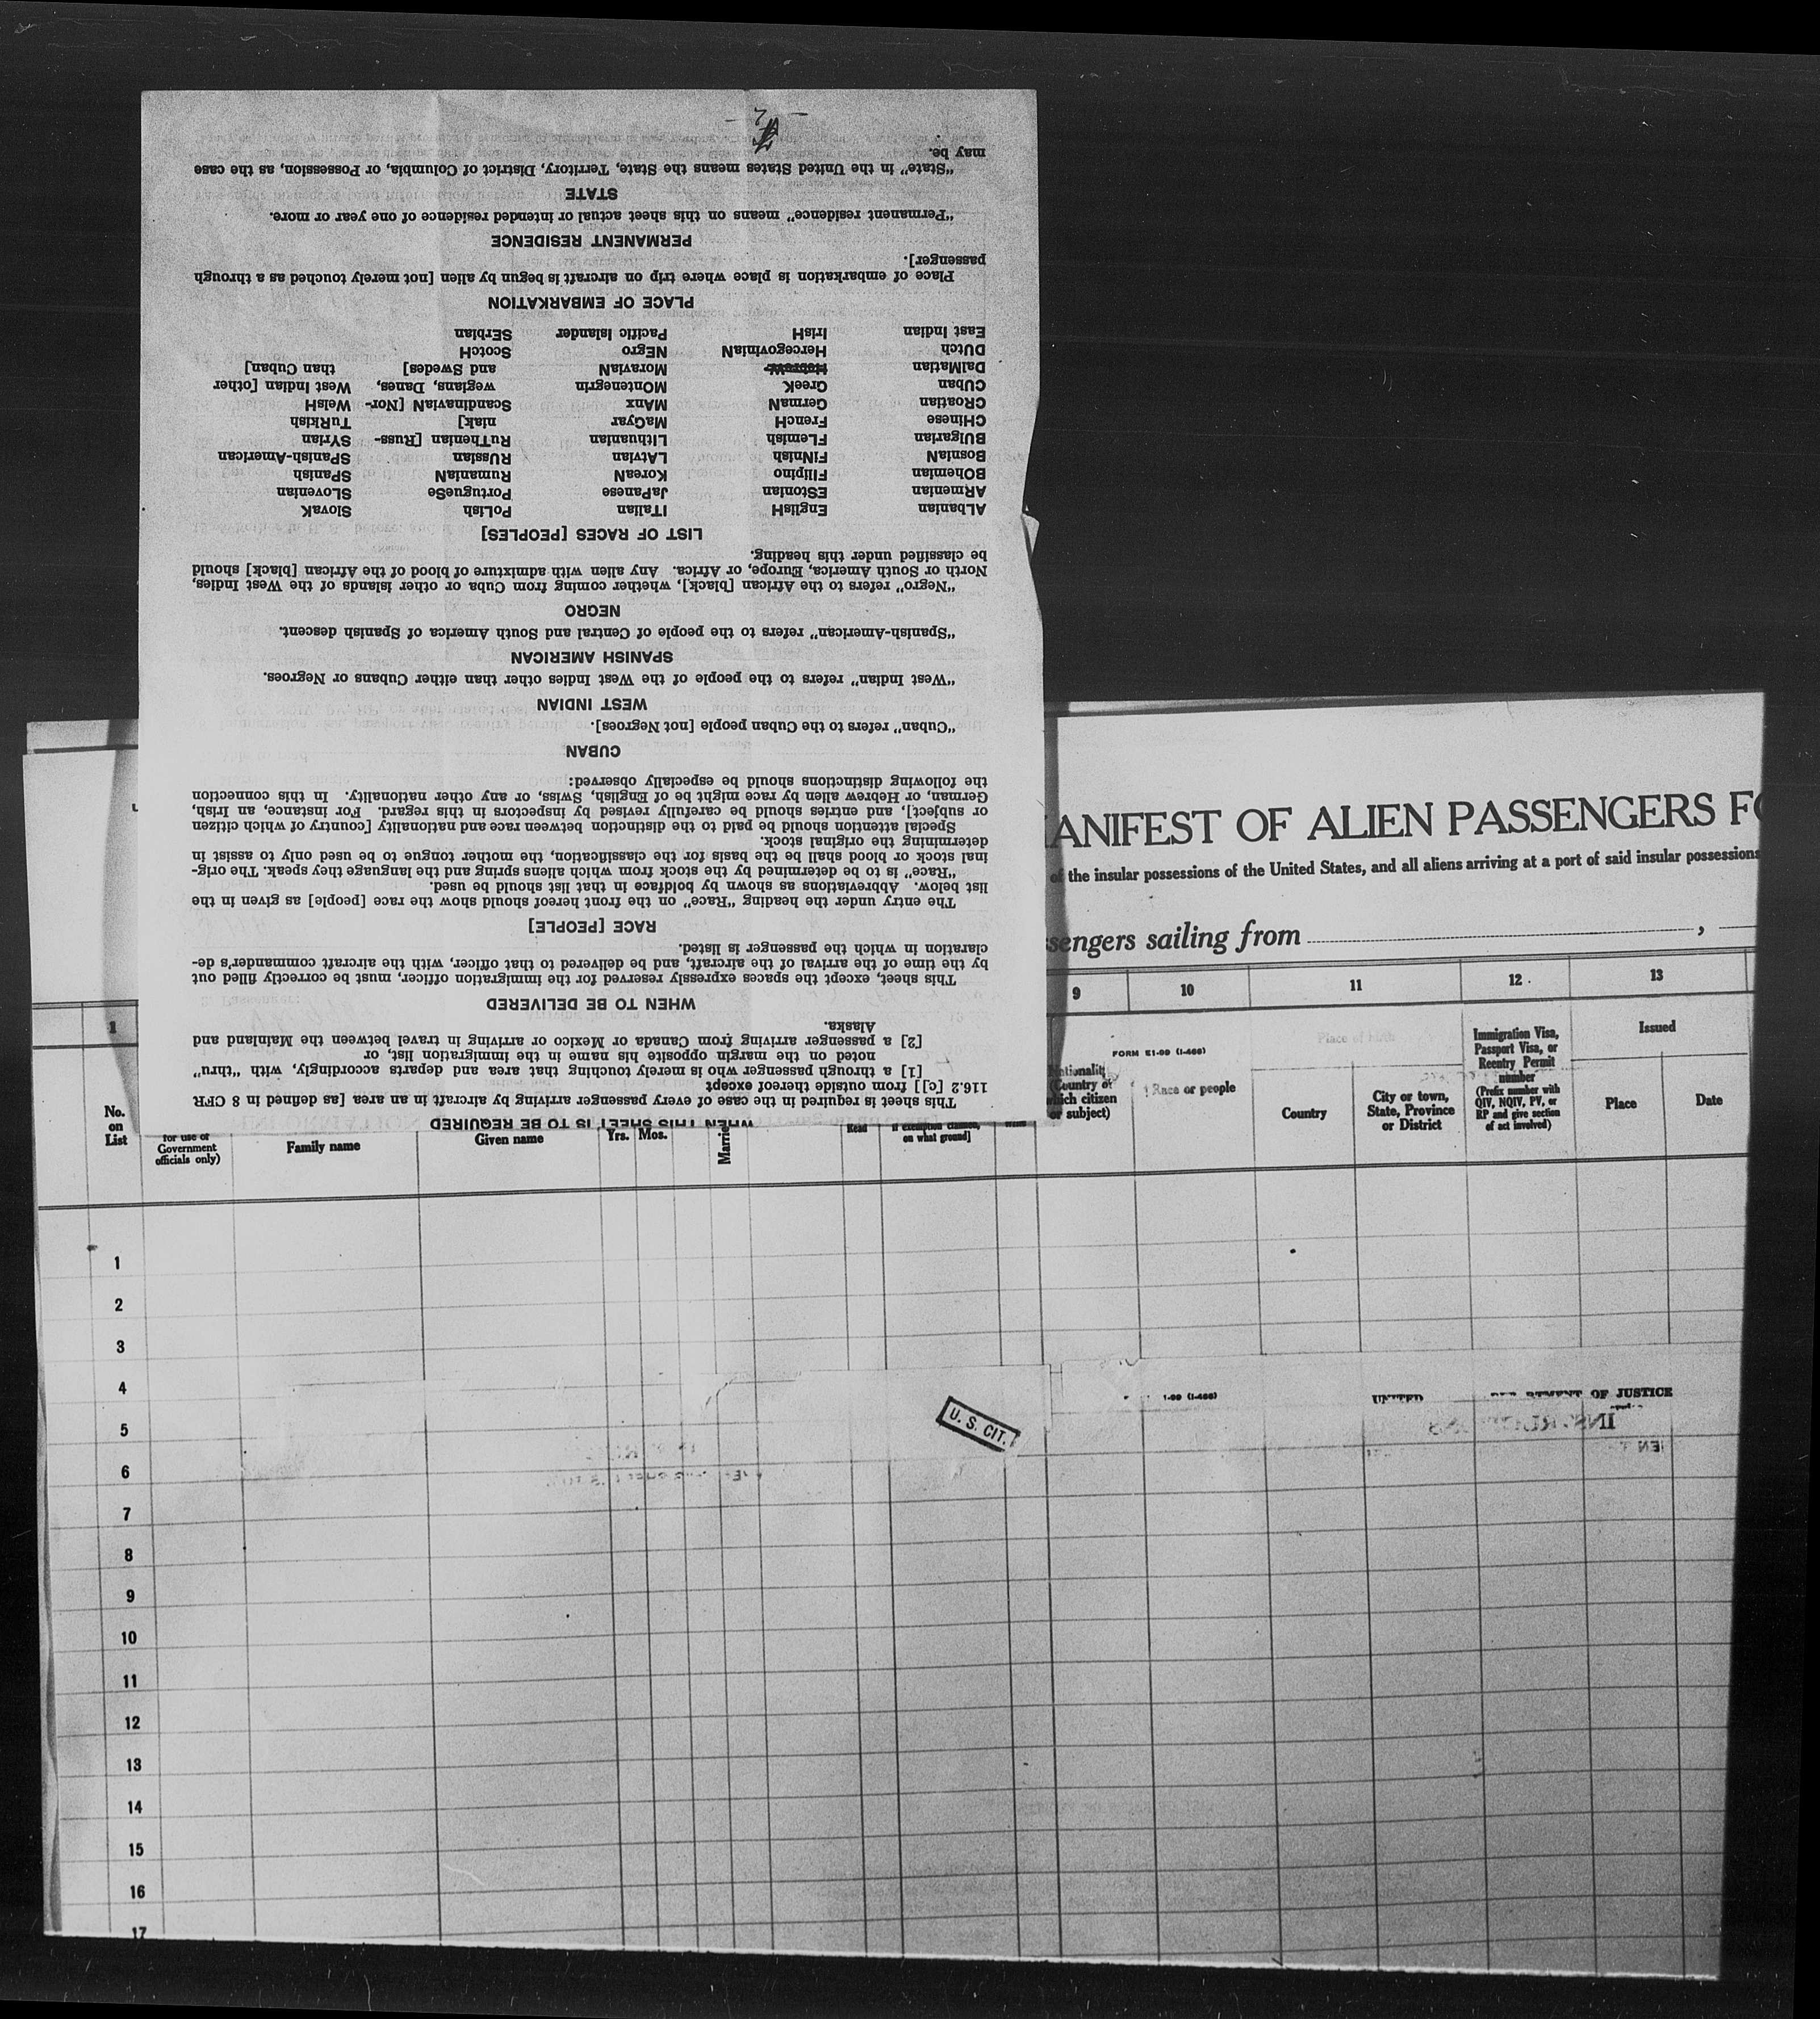 WHEN THIS SHEET IS TO BE REQUIRED
This sheet is required in the case of every passenger arriving by aircraft in an area [as defined in 8 CFR
116.2 [c]] from outside thereof except
[1] a through passenger who is merely touching that area and departs accordingly, with "thru"
noted on the margin opposite his name in the immigration list, or
[2] a passenger arriving from Canada or Mexico or arriving in travel between the Mainland and
Alaska.
WHEN TO BE DELIVERED
This sheet, except the spaces expressly reserved for the immigration officer, must be correctly filled out
by the time of the arrival of the aircraft, and be delivered to that officer, with the aircraft commander's de-
claration in which the passenger is listed.
RACE [PEOPLE]
The entry under the heading "Race" on the front hereof should show the race [people] as given in the
list below. Abbreviations as shown by boldface in that list should be used.
"Race" is to be determined by the stock from which aliens spring and the language they speak. The orig-
inal stock or blood shall be the basis for the classification, the mother tongue to be used only to assist in
determining the original stock.
Special attention should be paid to the distinction between race and nationality [country of which citizen
or subject], and entries should be carefully revised by inspectors in this regard. For instance, an Irish,
German, or Hebrew alien by race might be of English, Swiss, or any other nationality. In this connection
the following distinctions should be especially observed:
CUBAN
"Cuban" refers to the Cuban people [not Negroes].
WEST INDIAN
"West Indian" refers to the people of the West Indies other than either Cubans or Negroes.
SPANISH AMERICAN
"Spanish-American" refers to the people of Central and South America of Spanish descent.
NEGRO
"Negro" refers to the African [black], whether coming from Cuba or other islands of the West Indies,
North or South America, Europe, or Africa. Any alien with admixture of blood of the African [black] should
be classified under this heading.
LIST OF RACES [PEOPLES]
ALbanian EnglisH ITalian PoLish SlovaK
ARmenian EStonian JaPanese PortugueSe SLovenian
BOhemian FIlipino KoreaN RumaniaN SPanish
BosniaN FiNnish LAtvian RUssian SPanish-American
BUlgarian FLemish LIthuanian RuThenian [Russ- SYrian
CHinese FrencH MaGyar niak] TuRkish
CRoatian GermaN MAnx ScandinaviaN [Nor- WelsH
CUban GreeK MOntenegrin wegians, Danes, West Indian [other
DalMatian HebreW MoraviaN and Swedes] than Cuban]
DUtch HercegoviniaN NEgro ScotcH
East Indian IrisH Pacific Islander SErbian
PLACE OF EMBARKATION
Place of embarkation is place where trip on aircraft is begun by alien [not merely touched as a through
passenger].
PERMANENT RESIDENCE
"Permanent residence" means on this sheet actual or intended residence of one year or more.
STATE
"State" in the United States means the State, Territory, District of Columbia, or Possession, as the case
may be.
ANIFEST OF ALIEN PASSENGERS FO
of the insular possessions of the United States, and all aliens arriving at a port of said insular possessions
ssengers sailing from ,
1 9 10 11 12 13
No. on List
for use of Government officials only)
Family name
Given name
Yrs. Mos.
Marrie
Read
if exemption claimed, on what ground]
FORM I-99 (I-466)
Nationality (Country of which citizen or subject)
Race or people
Place of birth
Country
City or town, State, Province or District
Immigration Visa, Passport Visa, or Reentry Permit number
(Prefix number with QIV, NQIV, PV, or RP and give section of act involved)
Issued
Place
Date
1
2
3
4
I-99 (I-466) UNITED OF JUSTICE
U. S. CIT.
5
6
7
8
9
10
11
12
13
14
15
16
17